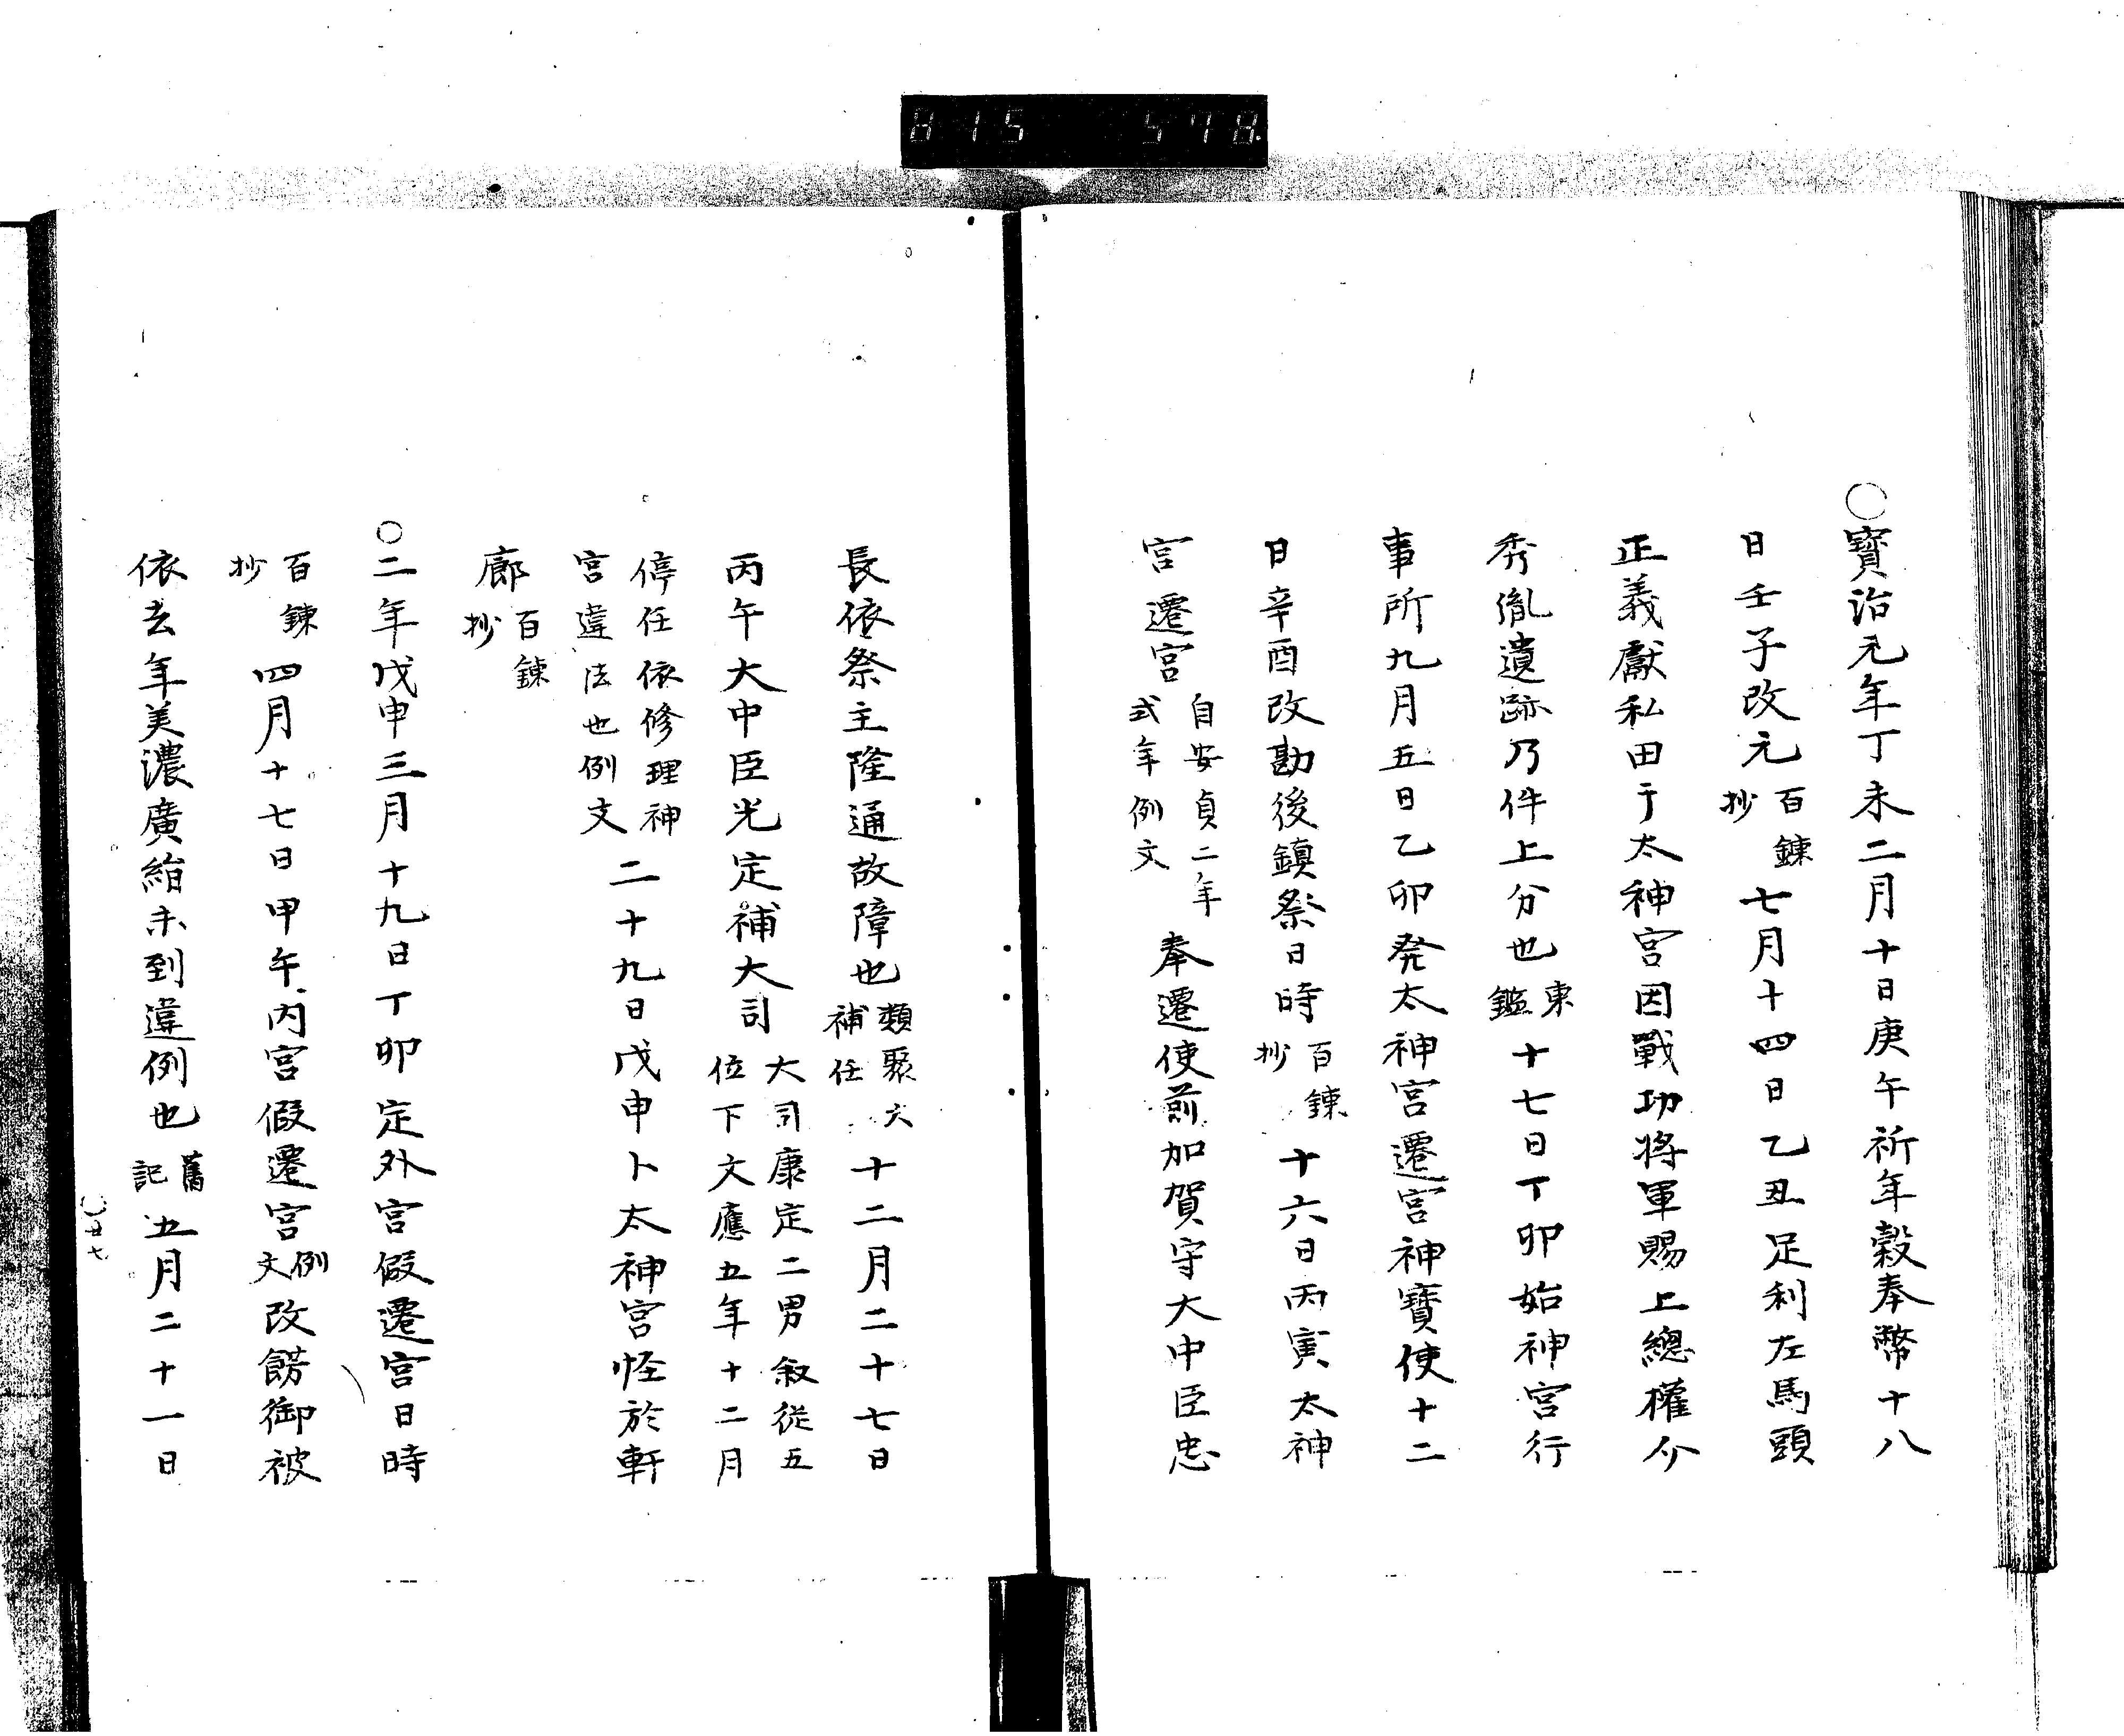 815 578
〇寳治元年丁未二月十日庚午祈年穀奉幣十八
日壬子改元百錬抄七月十四日乙丑足利左馬頭
正義獻私田于太神宮因戰功将軍賜上總權介
秀胤遺跡乃件上分也東鑑十七日丁卯始神宮行
事所九月五日乙卯発太神宮遷宮神寶使十二
日辛酉改勘後鎮祭日時百錬抄十六日丙寅太神
宮遷宮自安貞二年式年例文奉遷使前加賀守大中臣忠
長依祭主隆通故障也類聚大補任十二月二十七日
丙午大中臣光定補大司大司康定二男叙従五位下文應五年十二月
停任依修理神宮違法也例文二十九日戊申卜太神宮怪於軒
廊百錬抄
〇二年戊申三月十九日丁卯定外宮假遷宮日時
百錬抄四月十七日甲午内宮假遷宮例文改餝御被
依去年美濃廣絁未到違例也舊記五月二十一日
廿七